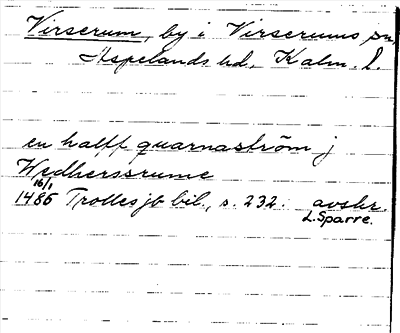 Virserum, by i Virserums sn,
Aspelands hd, Kalm. l.
en halff quarnaström j
Wedherssrume
16/1
1485 Trolles jb bil., s. 232. avskr.
L. Sparre.